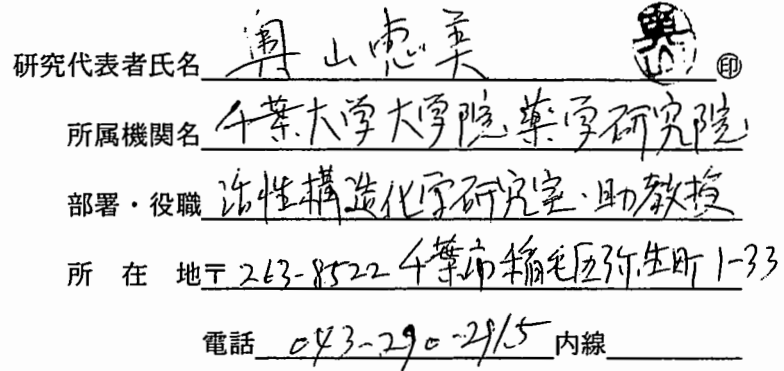 研究代表者氏名 奥山恵美 奥山 印
所属機関名 千葉大学大学院薬学研究院
部署・役職 活性構造化学研究室・助教授
所在地 〒263-8522 千葉市稲毛区弥生町1-33
電話 043-290-2915 内線